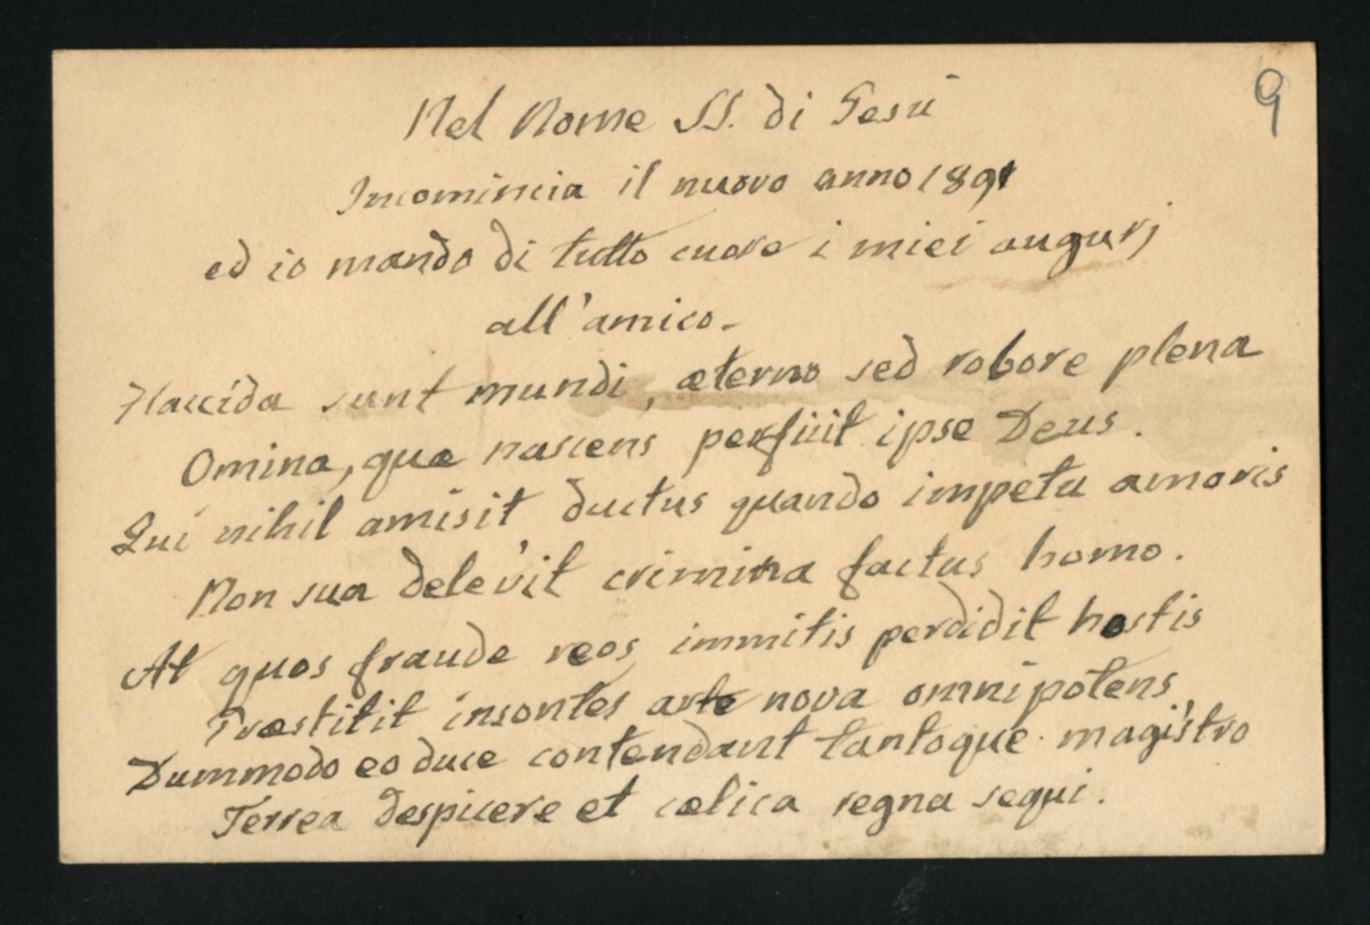 9
Nel Nome SS. di Gesù
Incomincia il nuovo anno 1891
ed io mando di tutto cuore i miei augurj
all'amico.
Flaccida sunt mundi, æterno sed robore plena
Omina, quæ nascens perficit ipse Deus.
Qui nihil amisit ductus quando impetu amoris
Non sua delevit crimina factus homo.
At quos fraude reos immitis perdidit hostis
Præstitit insontes arte nova omnipotens,
Dummodo eo duce contendant tantoque magistro
Terrea despicere et cælica regna sequi.